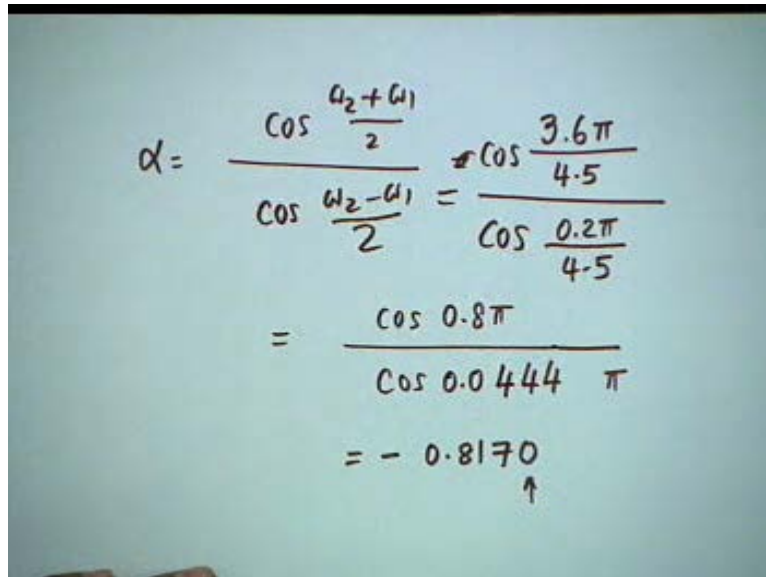 α = cos (ω2 + ω1)/2 / cos (ω2 - ω1)/2 = cos 3.6π/4.5 / cos 0.2π/4.5
= cos 0.8π / cos 0.0444 π
= - 0.8170
↑